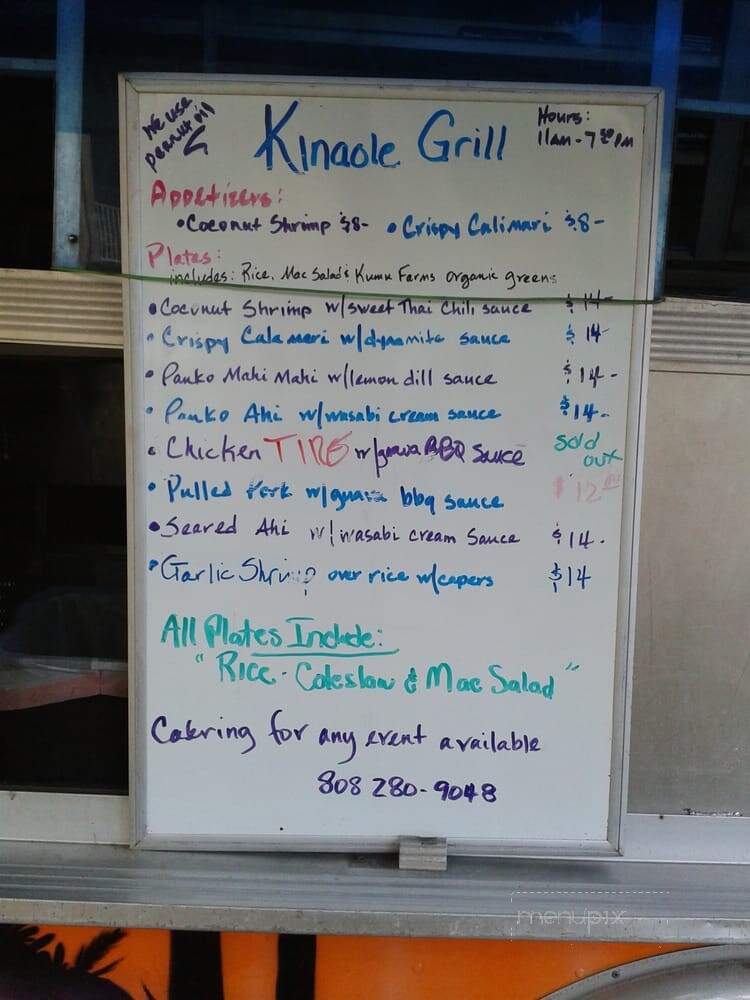 We use
peanut oil
Kinaole Grill
Hours:
11AM-7:30PM
Appetizers:
• Coconut Shrimp $8- • Crispy Calimari $8-
Plates:
includes: Rice, Mac Salad & Kumu Farms organic greens
• Coconut Shrimp w/sweet Thai Chili sauce $14-
• Crispy Calameri w/dynamite sauce $14-
• Panko Mahi Mahi w/lemon dill sauce $14-
• Panko Ahi w/wasabi cream sauce $14-
• Chicken w/guava BBQ Sauce sold out
• Pulled Pork w/guava bbq sauce $12
• Seared Ahi w/wasabi cream Sauce $14.
• Garlic Shrimp over rice w/capers $14
All Plates Include:
"Rice - Coleslaw & Mac Salad"
Catering for any event available
808 280-9048
menupix